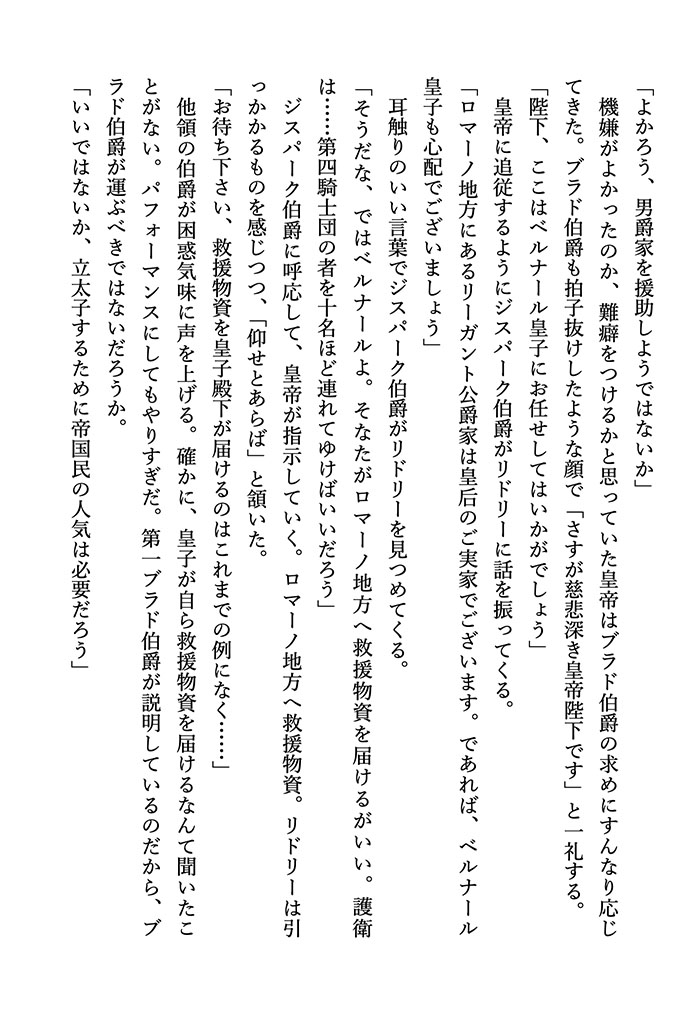 「よかろう、男爵家を援助しようではないか」
　機嫌がよかったのか、難癖をつけるかと思っていた皇帝はブラド伯爵の求めにすんなり応じ
てきた。ブラド伯爵も拍子抜けしたような顔で「さすが慈悲深き皇帝陛下です」と一礼する。
「陛下、ここはベルナール皇子にお任せしてはいかがでしょう」
　皇帝に追従するようにジスパーク伯爵がリドリーに話を振ってくる。
「ロマーノ地方にあるリーガント公爵家は皇后のご実家でございます。であれば、ベルナール
皇子も心配でございましょう」
　耳触りのいい言葉でジスパーク伯爵がリドリーを見つめてくる。
「そうだな、ではベルナールよ。そなたがロマーノ地方へ救援物資を届けるがいい。護衛
は……第四騎士団の者を十名ほど連れてゆけばいいだろう」
　ジスパーク伯爵に呼応して、皇帝が指示していく。ロマーノ地方へ救援物資。リドリーは引
っかかるものを感じつつ、「仰せとあらば」と頷いた。
「お待ち下さい、救援物資を皇子殿下が届けるのはこれまでの例になく……」
　他領の伯爵が困惑気味に声を上げる。確かに、皇子が自ら救援物資を届けるなんて聞いたこ
とがない。パフォーマンスにしてもやりすぎだ。第一ブラド伯爵が説明しているのだから、ブ
ラド伯爵が運ぶべきではないだろうか。
「いいではないか、立太子するために帝国民の人気は必要だろう」